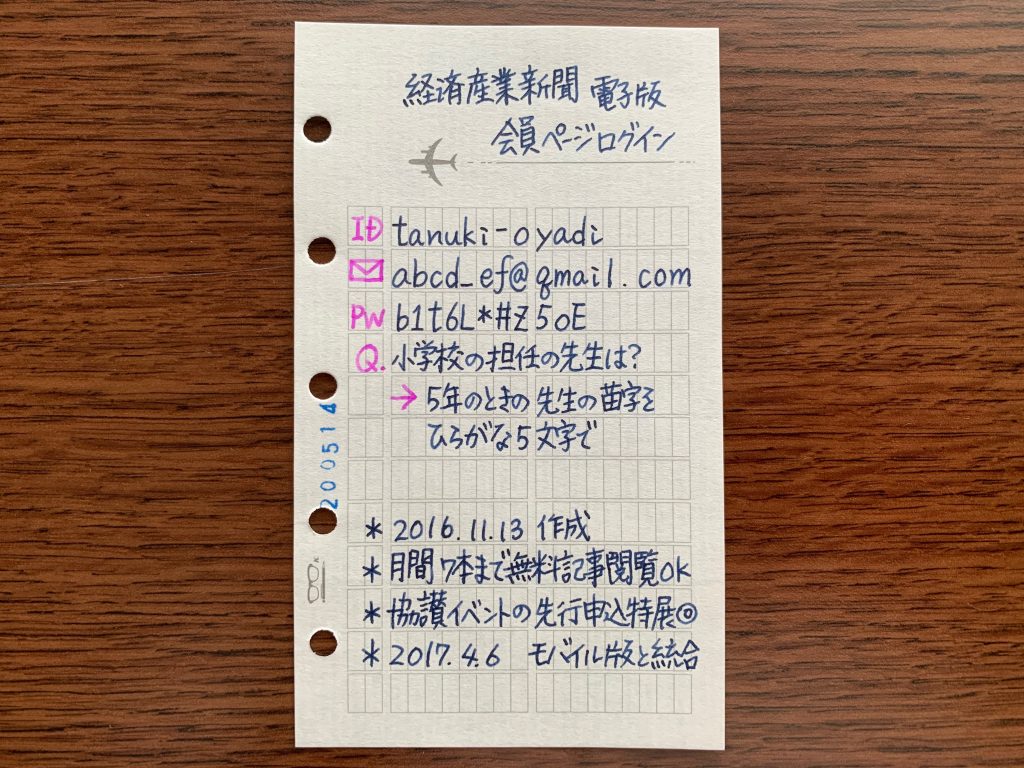 経済産業新聞 電子版
会員ページログイン
ID tanuki-oyadi
abcd_ef@qmail.com
PW b1t6L*#Z5oE
Q. 小学校の担任の先生は?
→ 5年のときの先生の苗字を
ひらがな5文字で
200514
* 2016.11.13 作成
* 月間7本まで無料記事閲覧OK
B1
* 協讃イベントの先行申込特展◎
* 2017.4.6 モバイル版と統合